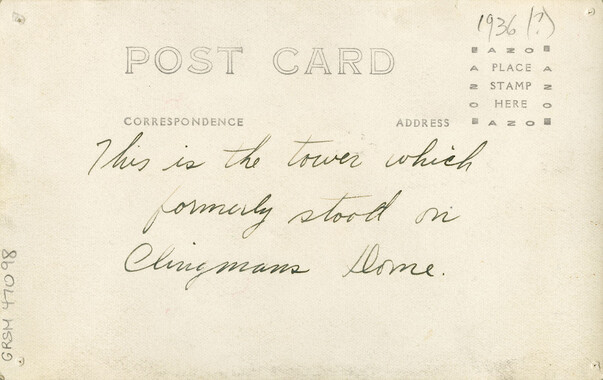 1936 (?)
POST CARD
EAZOE
A PLACE A
Z STAMP Z
O HERE O
EAZOE
CORRESPONDENCE
ADDRESS
This is the tower which
formerly stood on
Clingmans Dome.
GRSM 47098